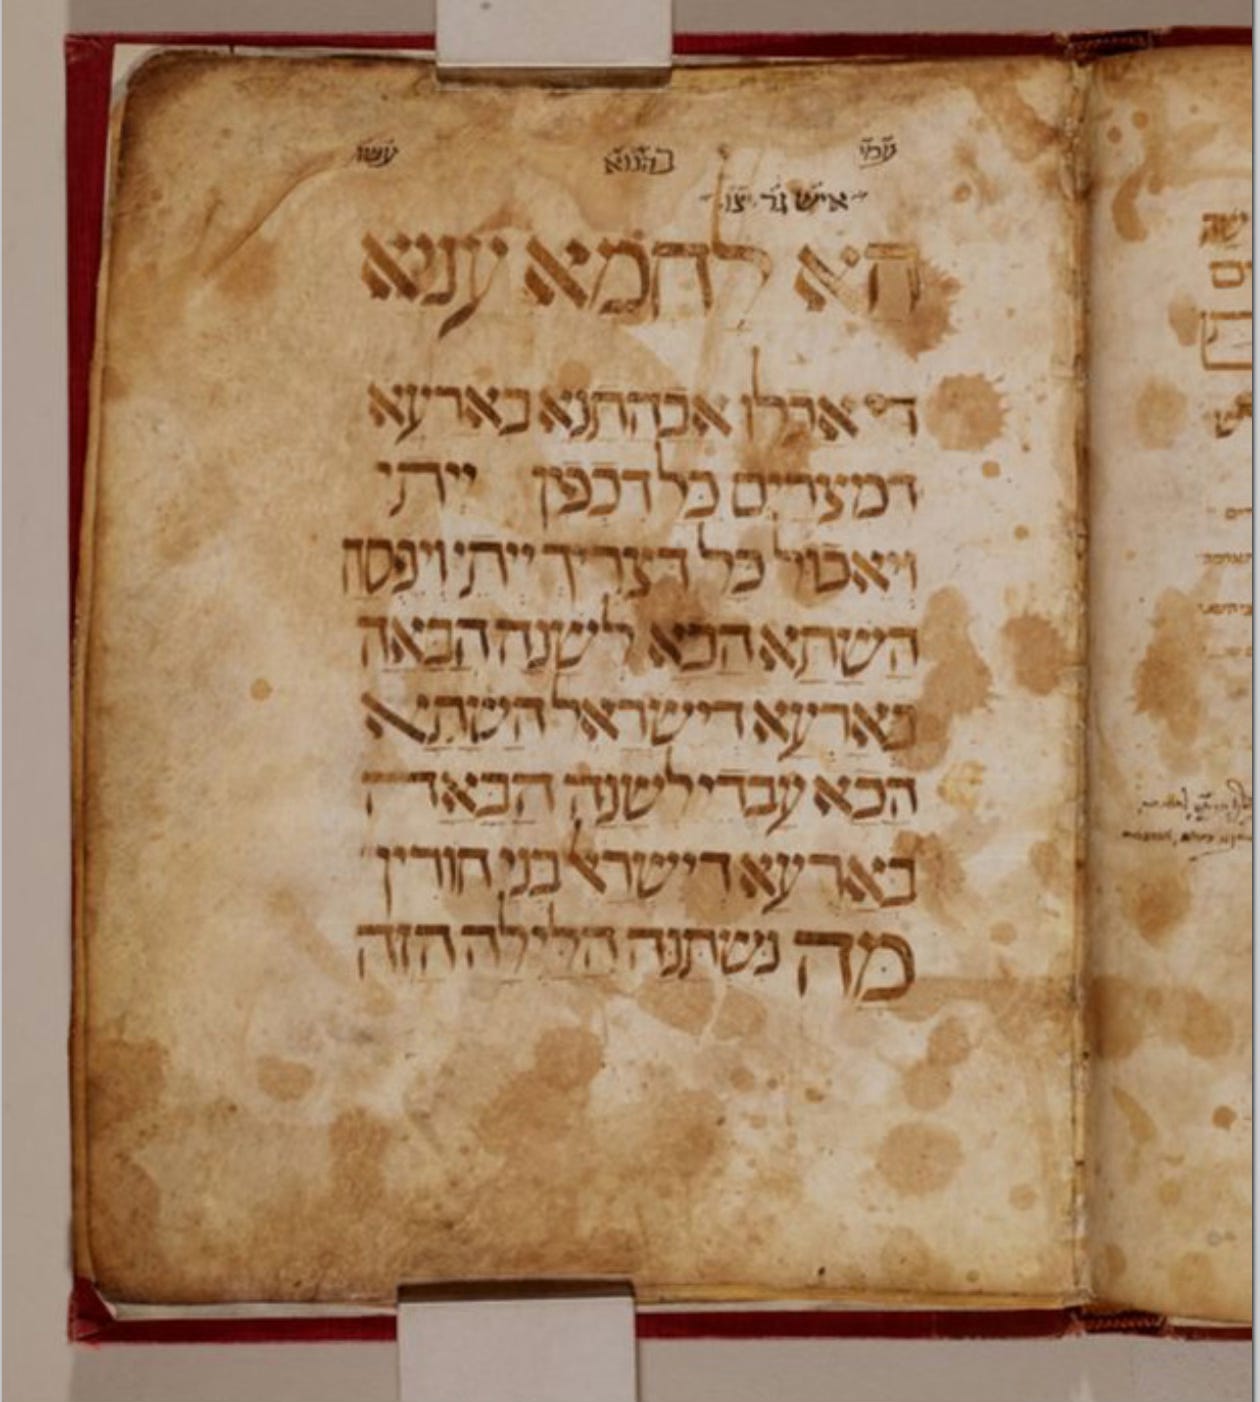 הא לחמא עניא
די אכלו אבהתנא בארעא
דמצרים כל דכפין ייתי
ויאכול כל דצריך ייתי ויפסח
השתא הכא לשנה הבאה
בארעא דישראל השתא
הכא עבדי לשנה הבאה
בארעא דישראל בני חורין
מה נשתנה הלילה הזה